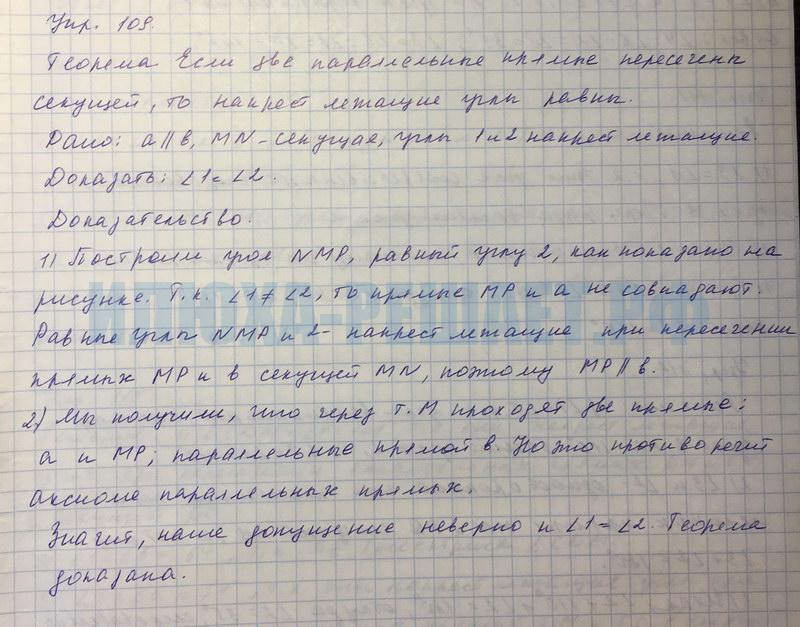 Упр. 109.
Теорема Если две параллельные прямые пересечены
секущей, то накрест лежащие углы равны.
Дано: a∥b, MN-секущая, углы 1 и 2 накрест лежащие.
Доказать: ∠1=∠2.
Доказательство.
1) Построим угол NMP, равный углу 2, как показано на
рисунке. Т.к. ∠1≠∠2, то прямые MP и a не совпадают.
Равные углы NMP и 2- накрест лежащие при пересечении
прямых MP и в секущей MN, поэтому MP∥в.
2) Мы получили, что через т.М проходят две прямые:
a и MP; параллельные прямой в. Но это противоречит
аксиоме параллельных прямых.
Значит, наше допущение неверно и ∠1=∠2. Теорема
доказана.